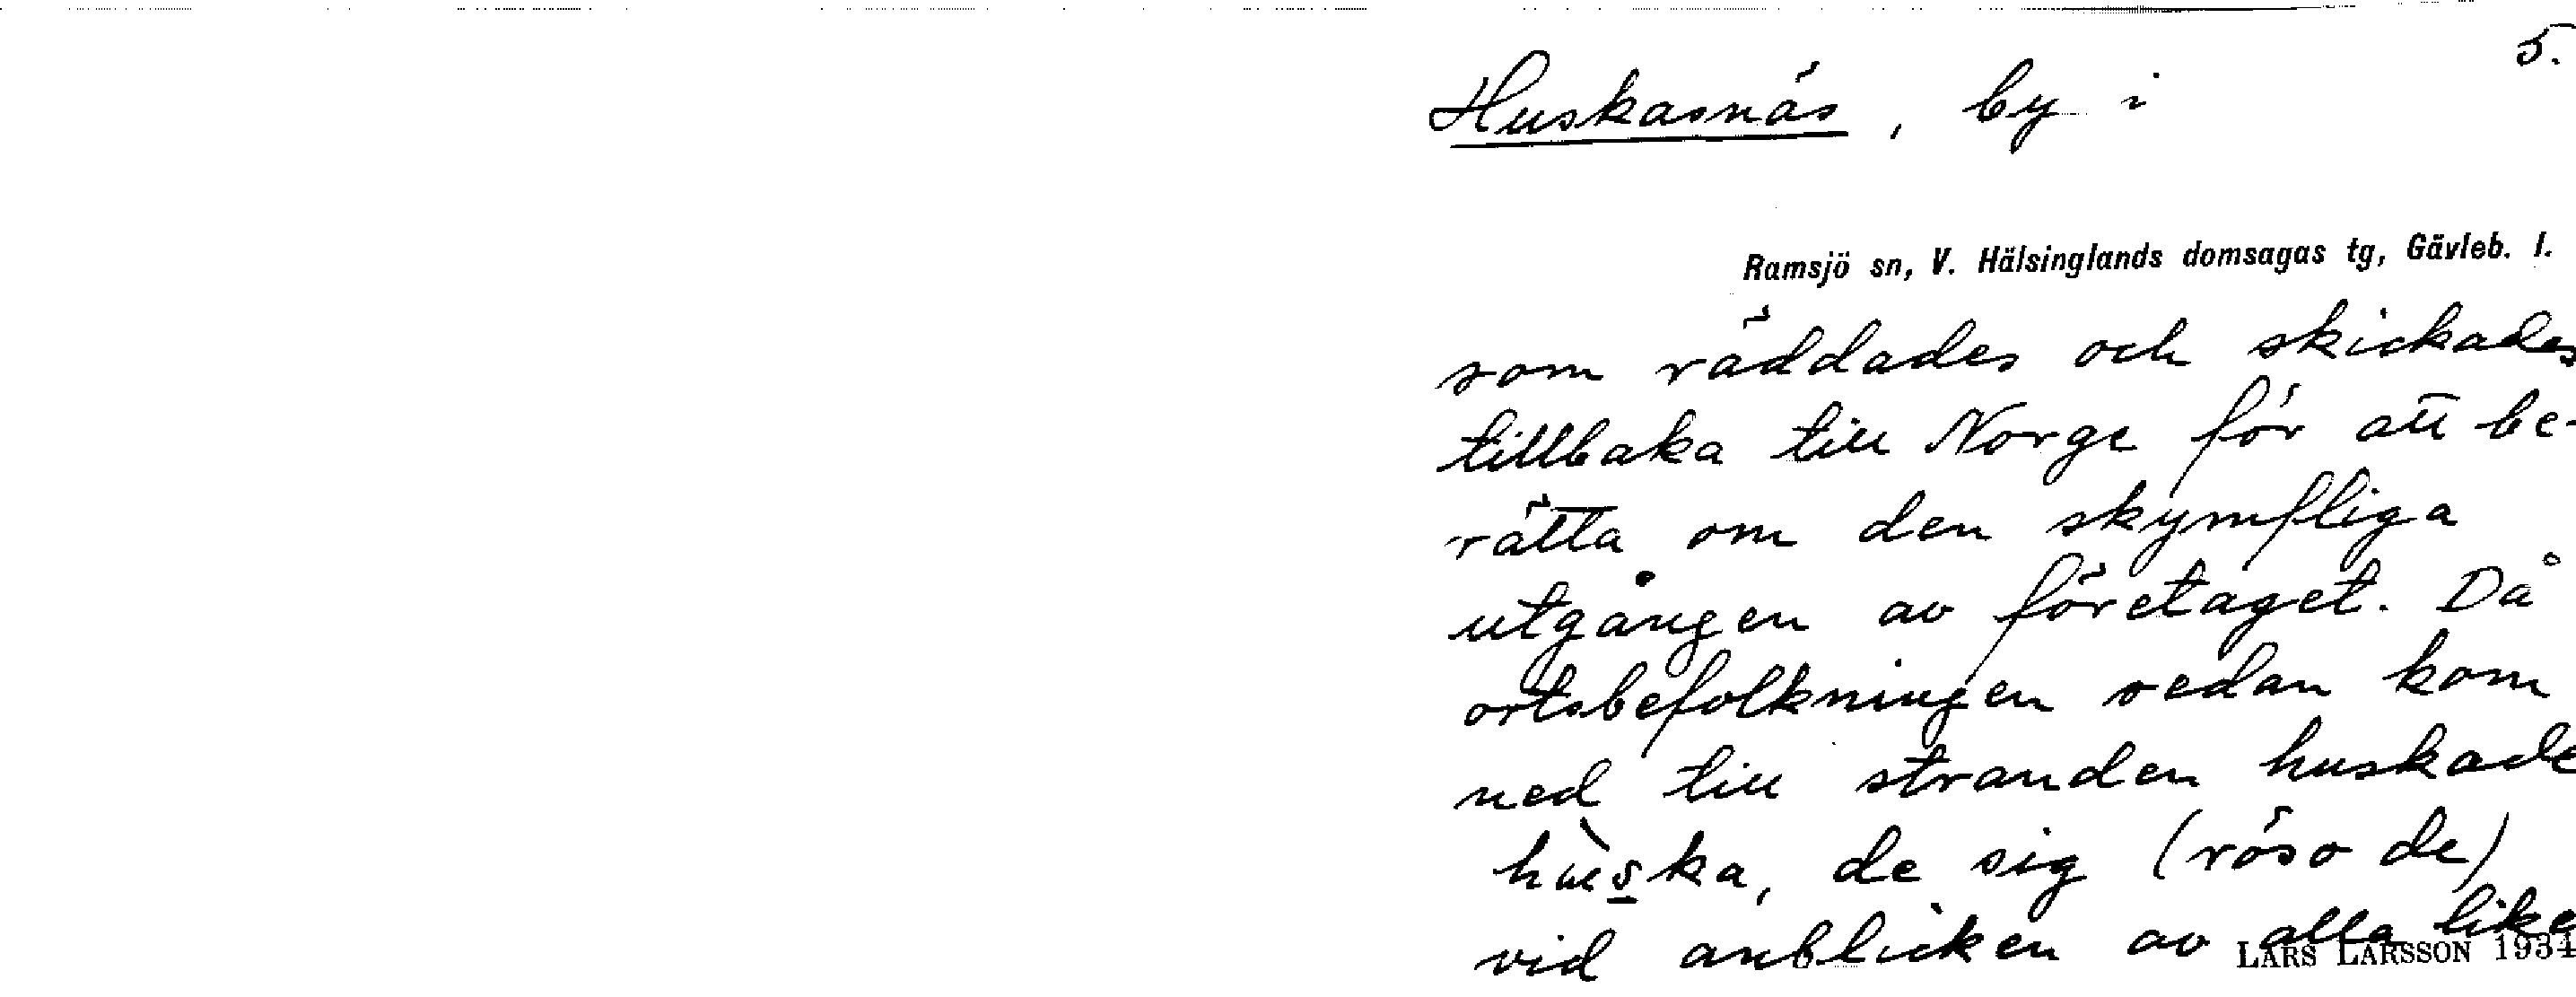 5.
Huskasnäs, by i
Ramsjö sn, V. Hälsinglands domsagas tg, Gävleb. l.
som räddades och skickades
tillbaka till Norge för att be-
rätta om den skymfliga
utgången av företaget. Då
ortsbefolkningen sedan kom
ned till stranden huskade
hùs̲ka, de sig (röso de)
vid anblicken av alla like
LARS LARSSON 1934